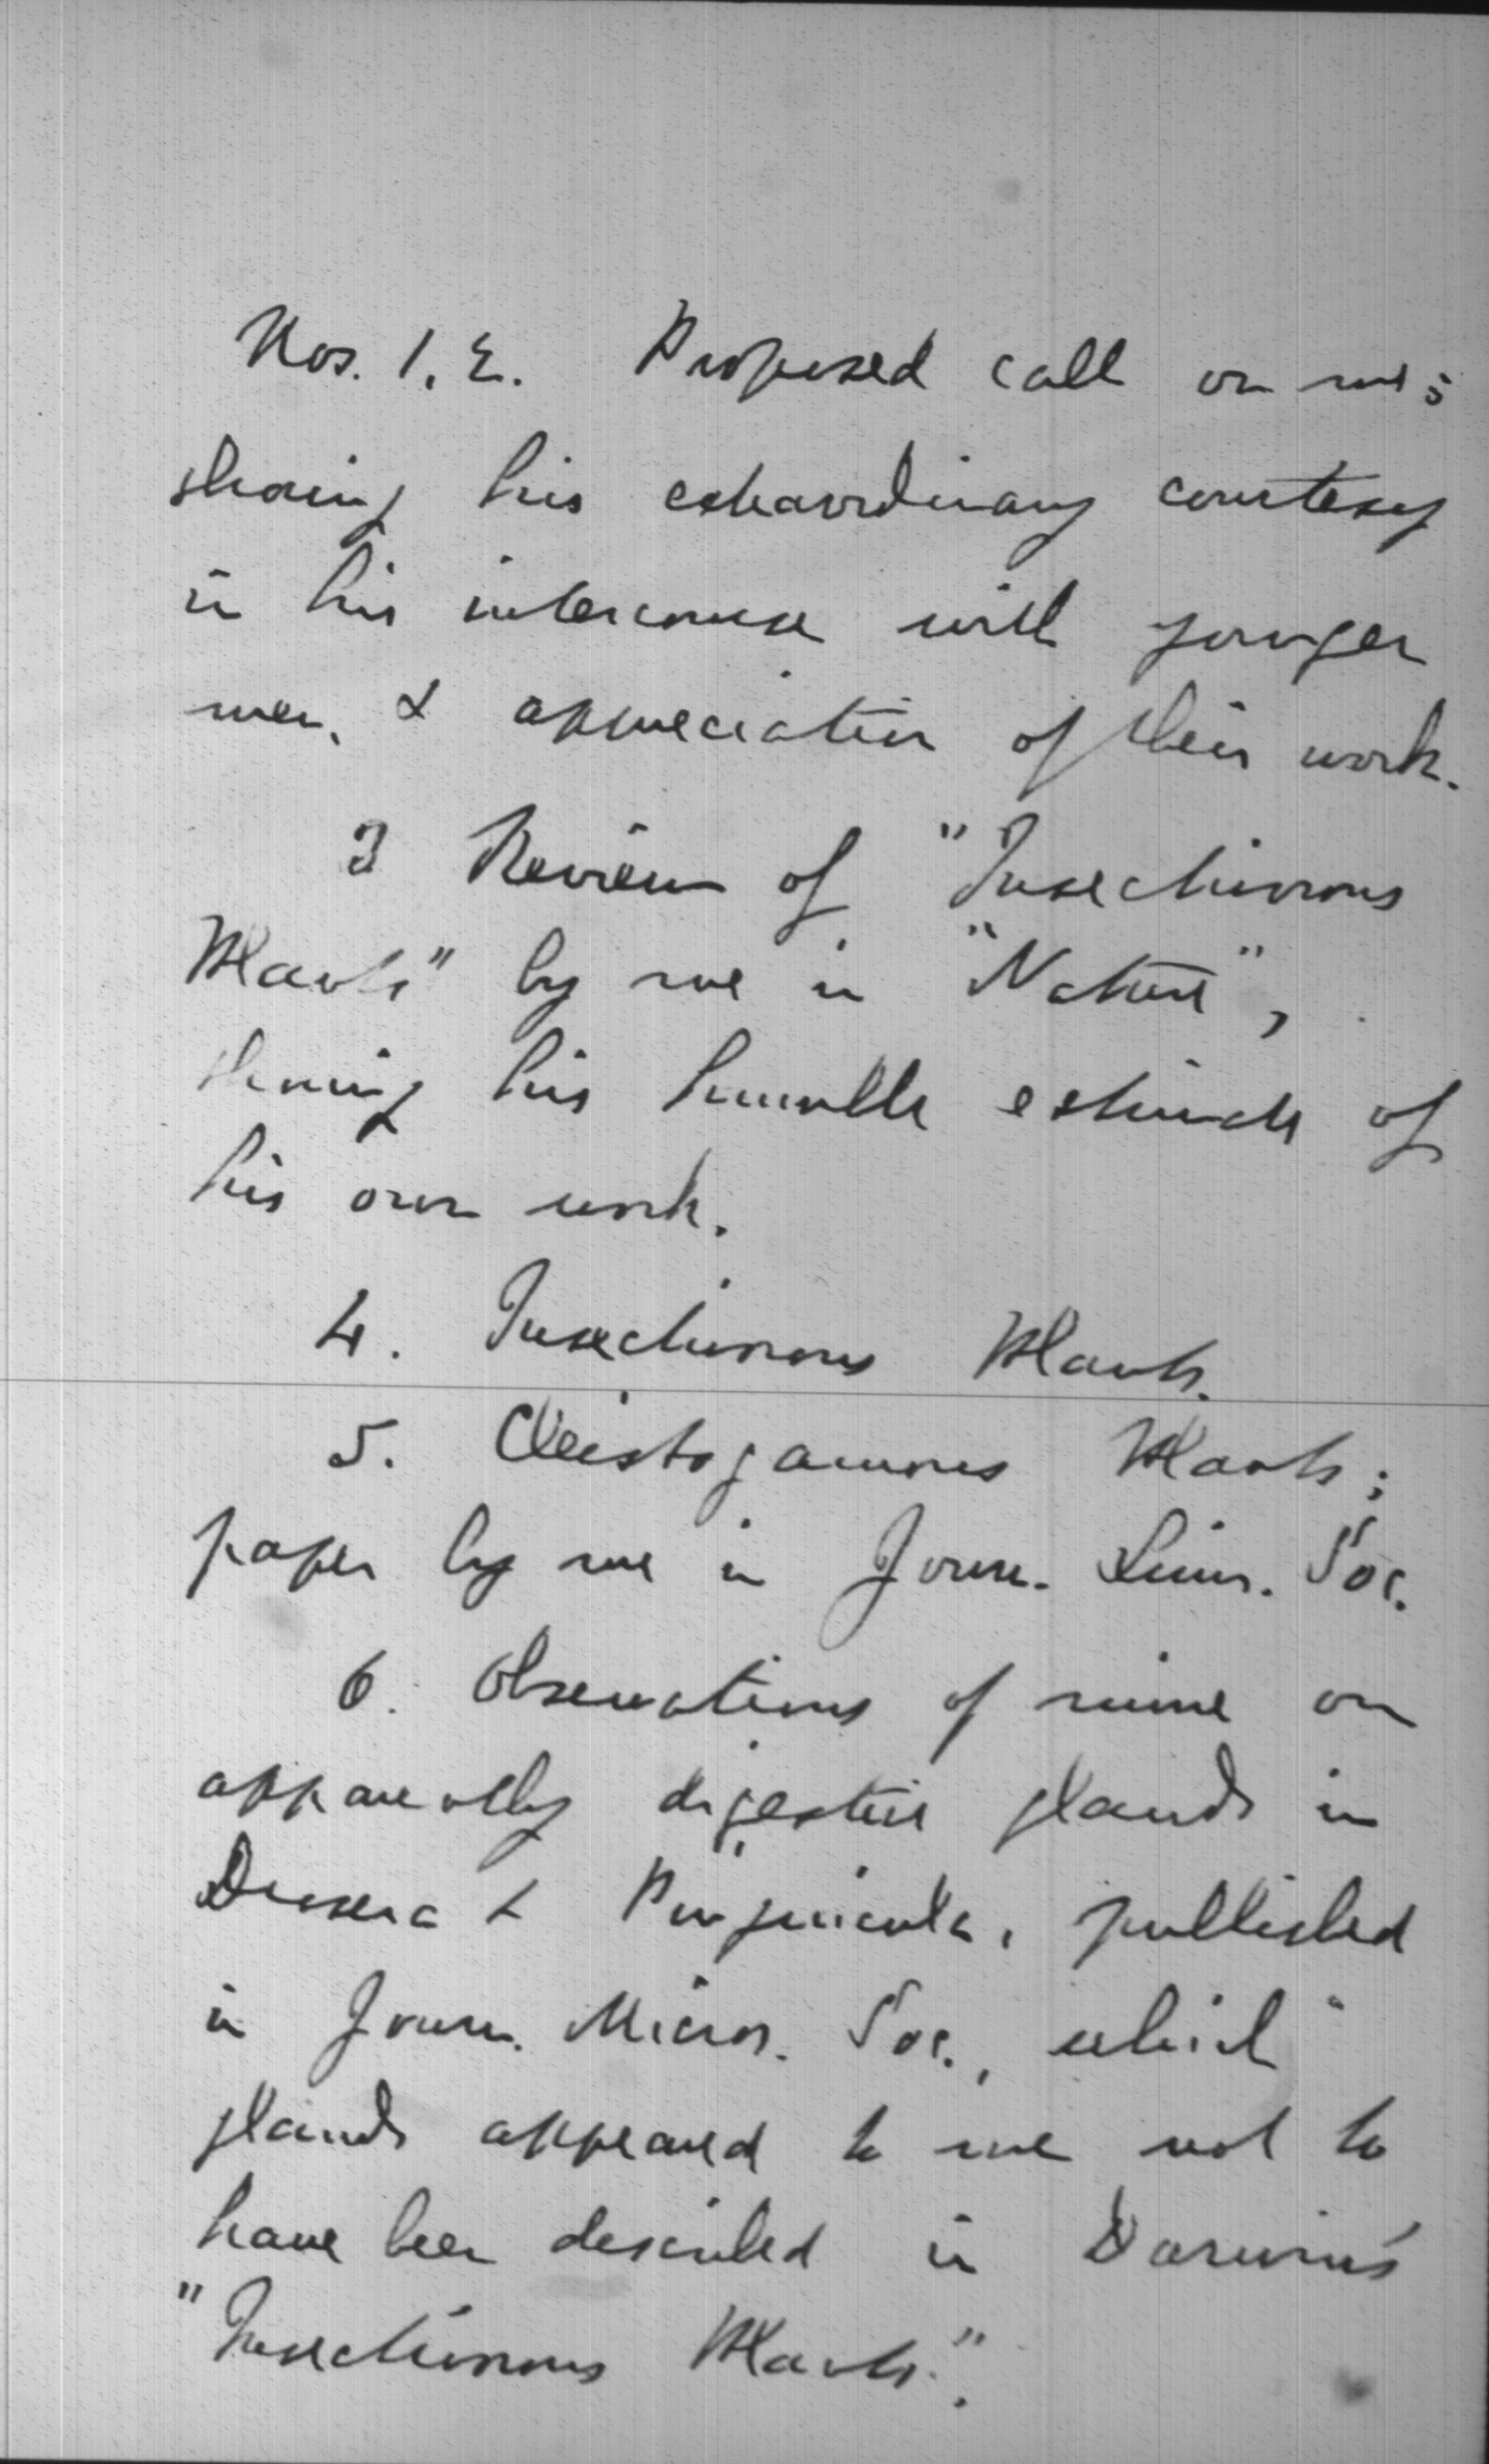 Nos. 1, 2. Proposed call on me;
showing his extraordinary courtesy
in his intercourse with younger
men, & appreciation of their work.
3 Review of "Insectivorous
Plants" by me in "Nature",
showing his humble estimate of
his own work.
4. Insectivorous Plants.
5. Cleistogamous Plants;
paper by me in Journ. Linn. Soc.
6. Observations of mine on
apparently digestive glands in
Drosera & Pinguicula, published
in Journ. Micros. Soc., which
glands appeared to me not to
have been described in Darwin's
"Insectivorous Plants".